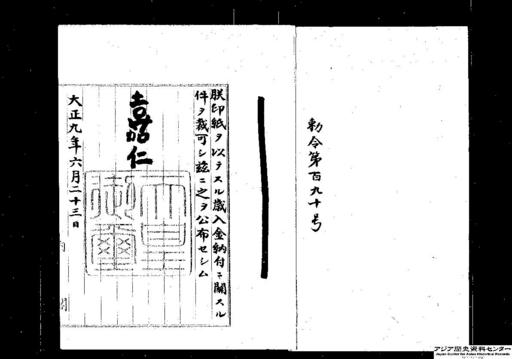 勅令第百九十号
朕印紙ヲ以テスル歳入金納付ニ関スル
件ヲ裁可シ茲ニ之ヲ公布セシム
嘉仁
天皇御璽
大正九年六月二十三日
内閣
アジア歴史資料センター
Japan Center for Asian Historical Records